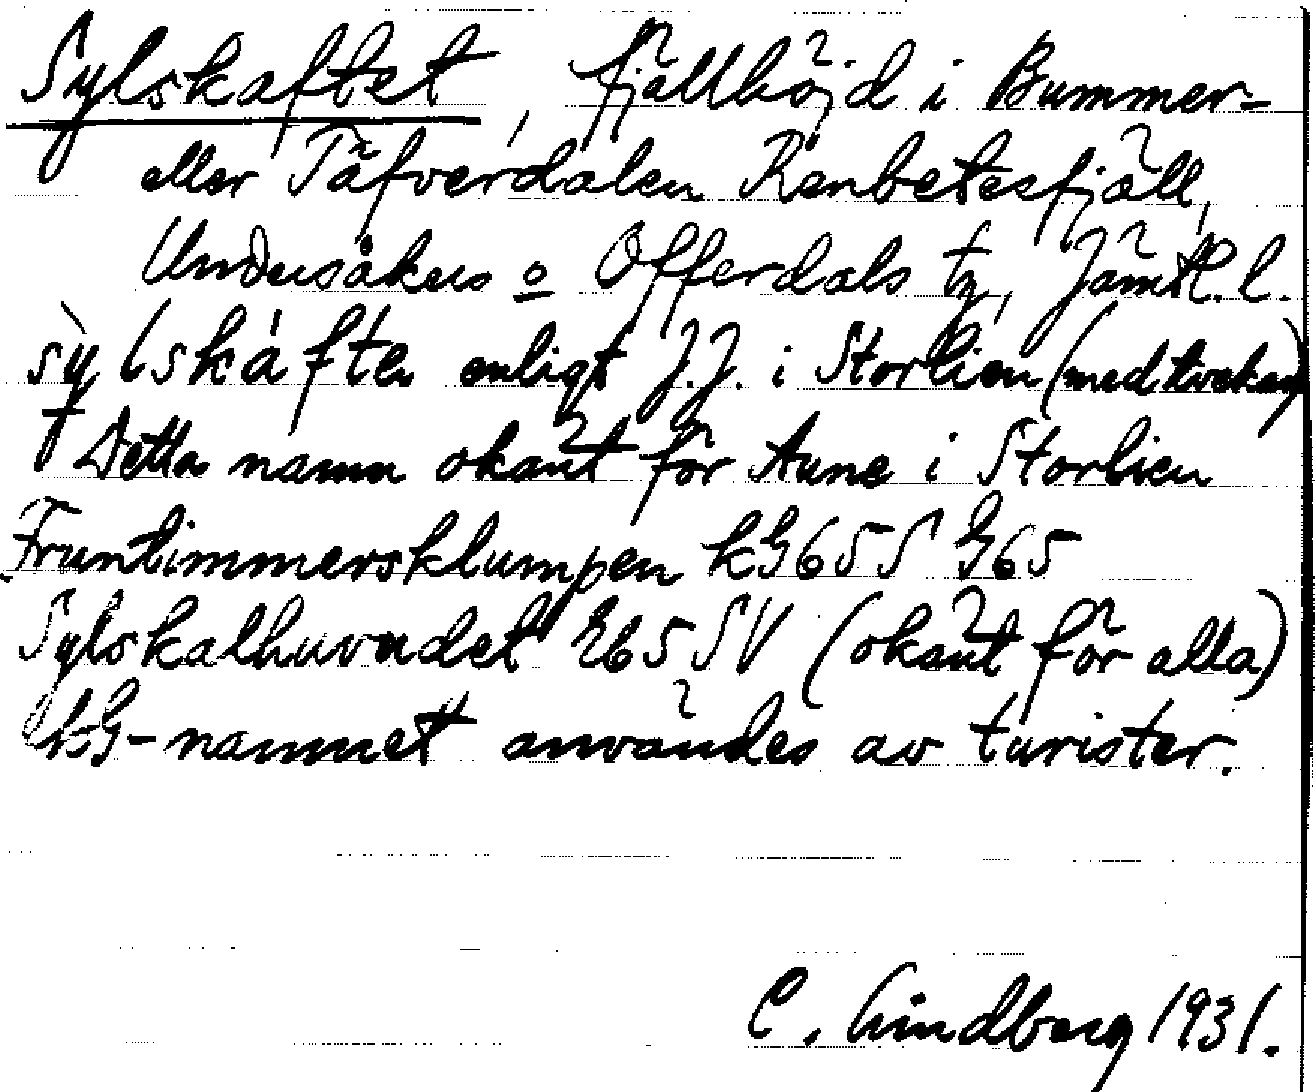 Sylskaftet, fjällhöjd i Bummer-
eller Täfverdalen Renbetesfjäll,
Undersåkers o Offerdals tg, Jämtl. l.
sỳlskáften enligt J.J. i Storlien (med tvekan)
Detta namn okänt för Aune i Storlien
Fruntimmersklumpen kG65S G65
Sylskalhuvudet G65SV (okänt för alla)
kG-namnet användes av turister.
C. Lindberg 1931.